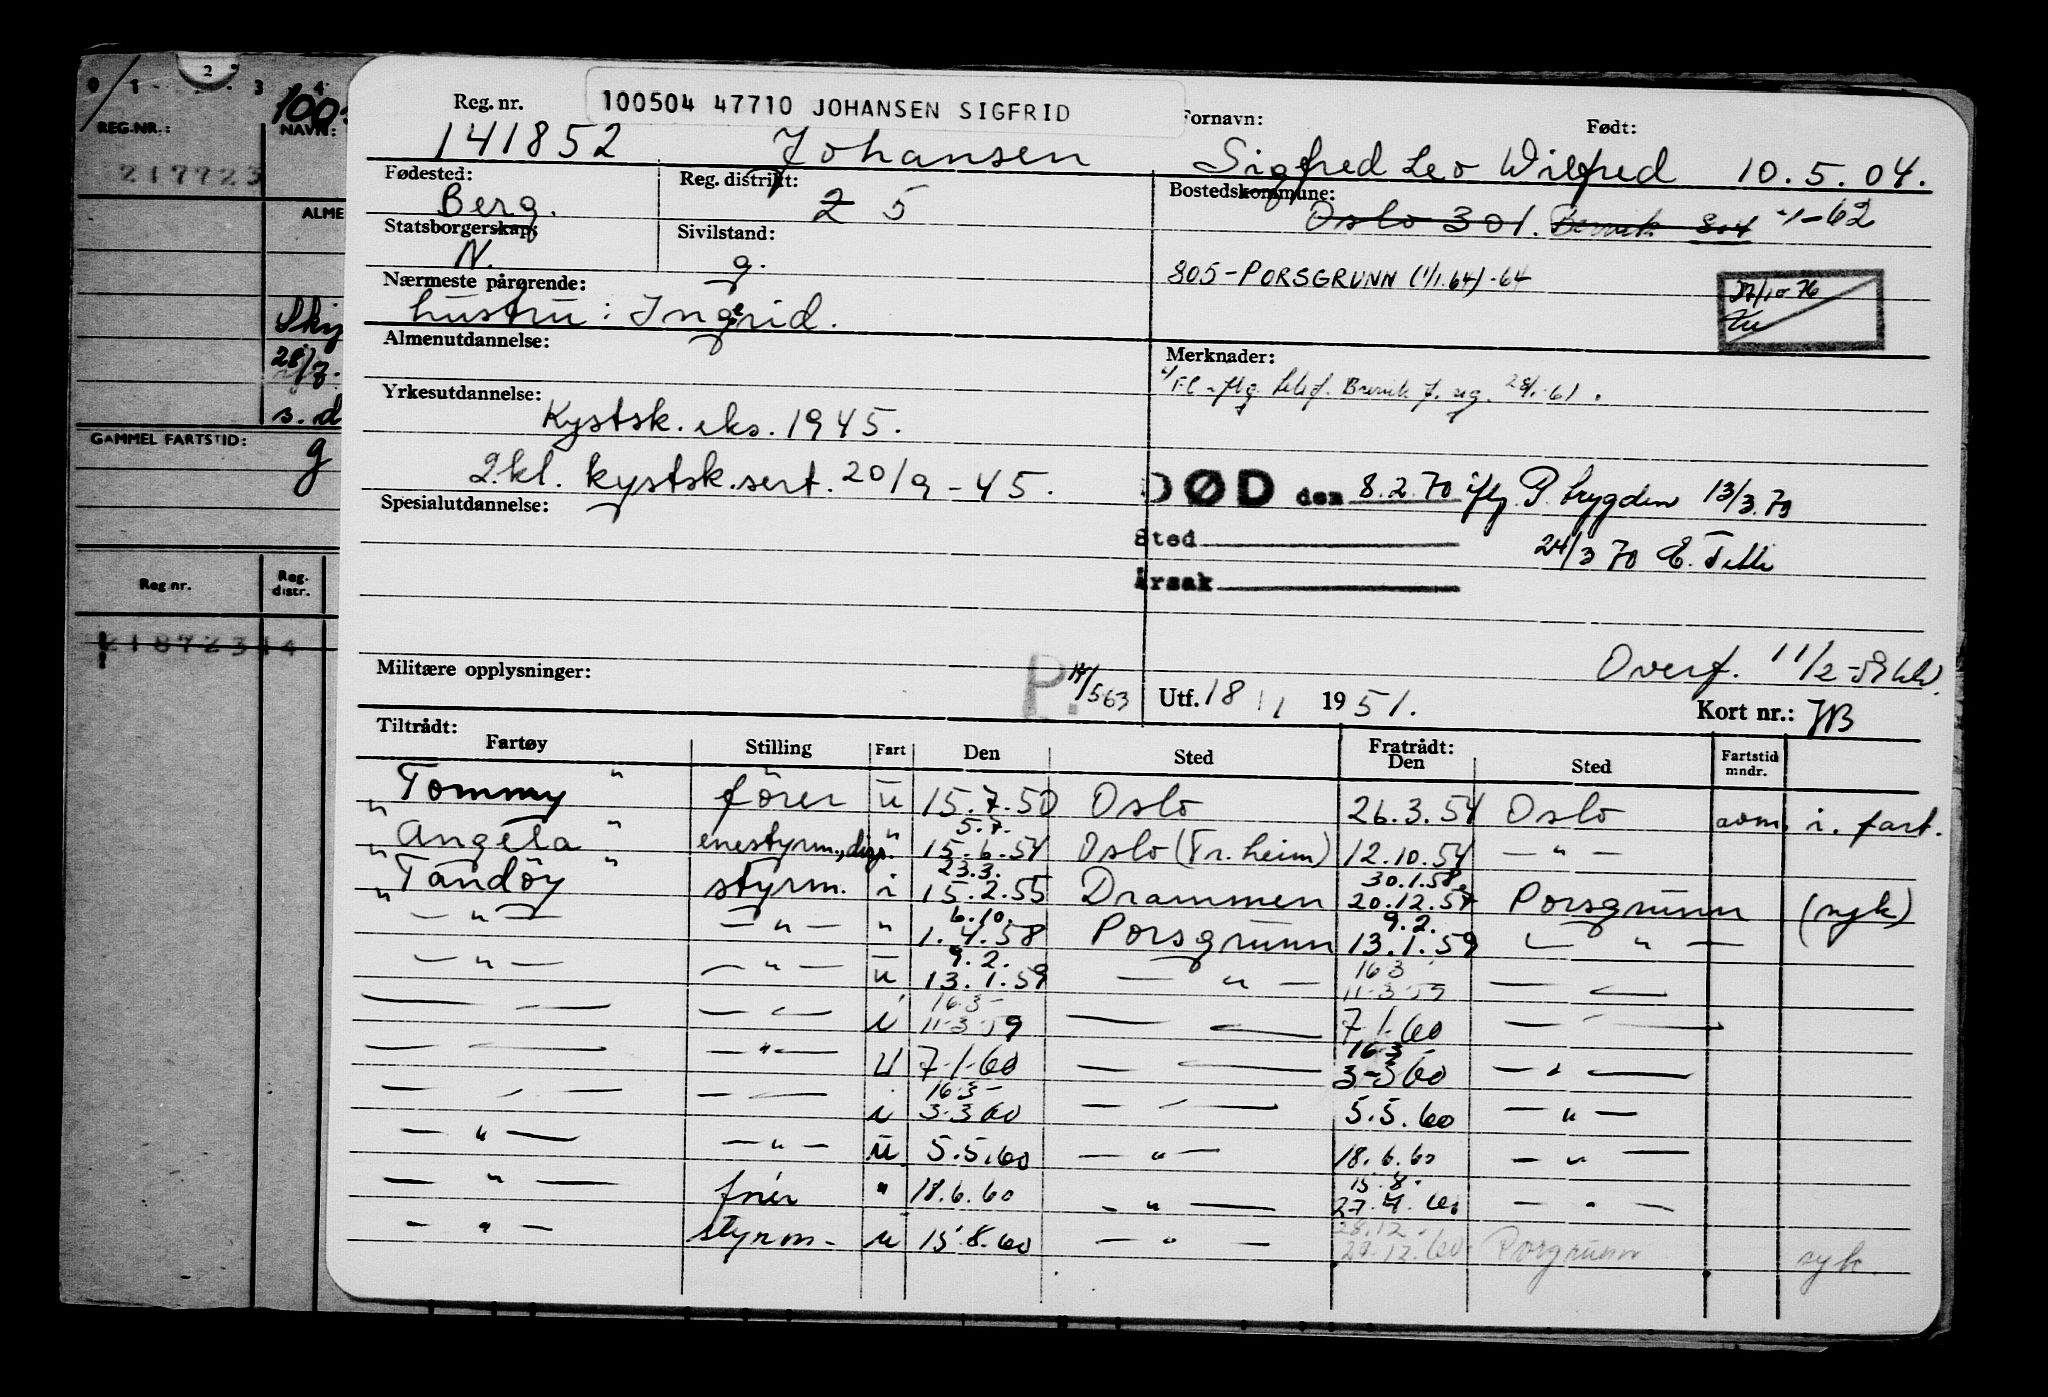 0 1 2 3 4
100
REG.NR.:
NAVN:
217723
ALME
Skip
28/7
s. d
GAMMEL FARTSTID:
g
Reg nr.
Reg. distr.
218723 14
100504 47710 JOHANSEN SIGFRID
Reg. nr. Fornavn: Født:
141852 Johansen Sigfred Leo Wilfred 10.5.04.
Fødested: Reg. distrikt: Bostedskommune:
Berg. 2 5 Oslo 301. Brevik 804 -62
Statsborgerskap: Sivilstand:
N. g. 805-PORSGRUNN (1/1.64)-64
27/10-76
Nærmeste pårørende:
hustru: Ingrid.
Almenutdannelse: Merknader:
Brevik
Yrkesutdannelse:
Kystsk. eks. 1945.
2.kl. kystsk.sert. 20/9-45.
DØD den 8.2.70 iflg. P. trygden 13/3.70
Spesialutdannelse:
Sted
24/3 70 E.
Årsak
Overf. 11/2-
Militære opplysninger: P. 14/563 Utf. 18/1 1951. Kort nr.:
Tiltrådt: Fratrådt:
Fartøy Stilling Fart Den Sted Den Sted Fartstid mndr.
"Tommy" förer u 15.7.50 Oslo 26.3.54 Oslo avm. i. fart.
5.7.
"Angela" enestyrm., disp. " 15.6.54 Oslo (Tr.heim) 12.10.54 — " —
23.3. 30.1.58
"Tandöy" styrm. i 15.2.55 Drammen 20.12.57 Porsgrunn (syk)
6.10. 9.2.
— " — — " — " 1.4.58 Porsgrunn 13.1.59 — " —
9.2. 16.3
— " — — " — u 13.1.59 — " — 11.3.59 — —
16.3
— — — — i 11.3.59 — — 7.1.60 — —
16.3
— — — " — U 7-1-60 — — 3-3 60 — " —
16.3
— — — — i 3.3 60 — — 5.5.60 — " —
— " — — " — u 5.5.60 — " — 18.6.60 — " —
15.8.
— " — förer " 18.6.60 — " — 27.7.60 — " —
28.12.
— " — styrm. u 15.8.60 — " — 29.12.60 Porsgrunn syk.